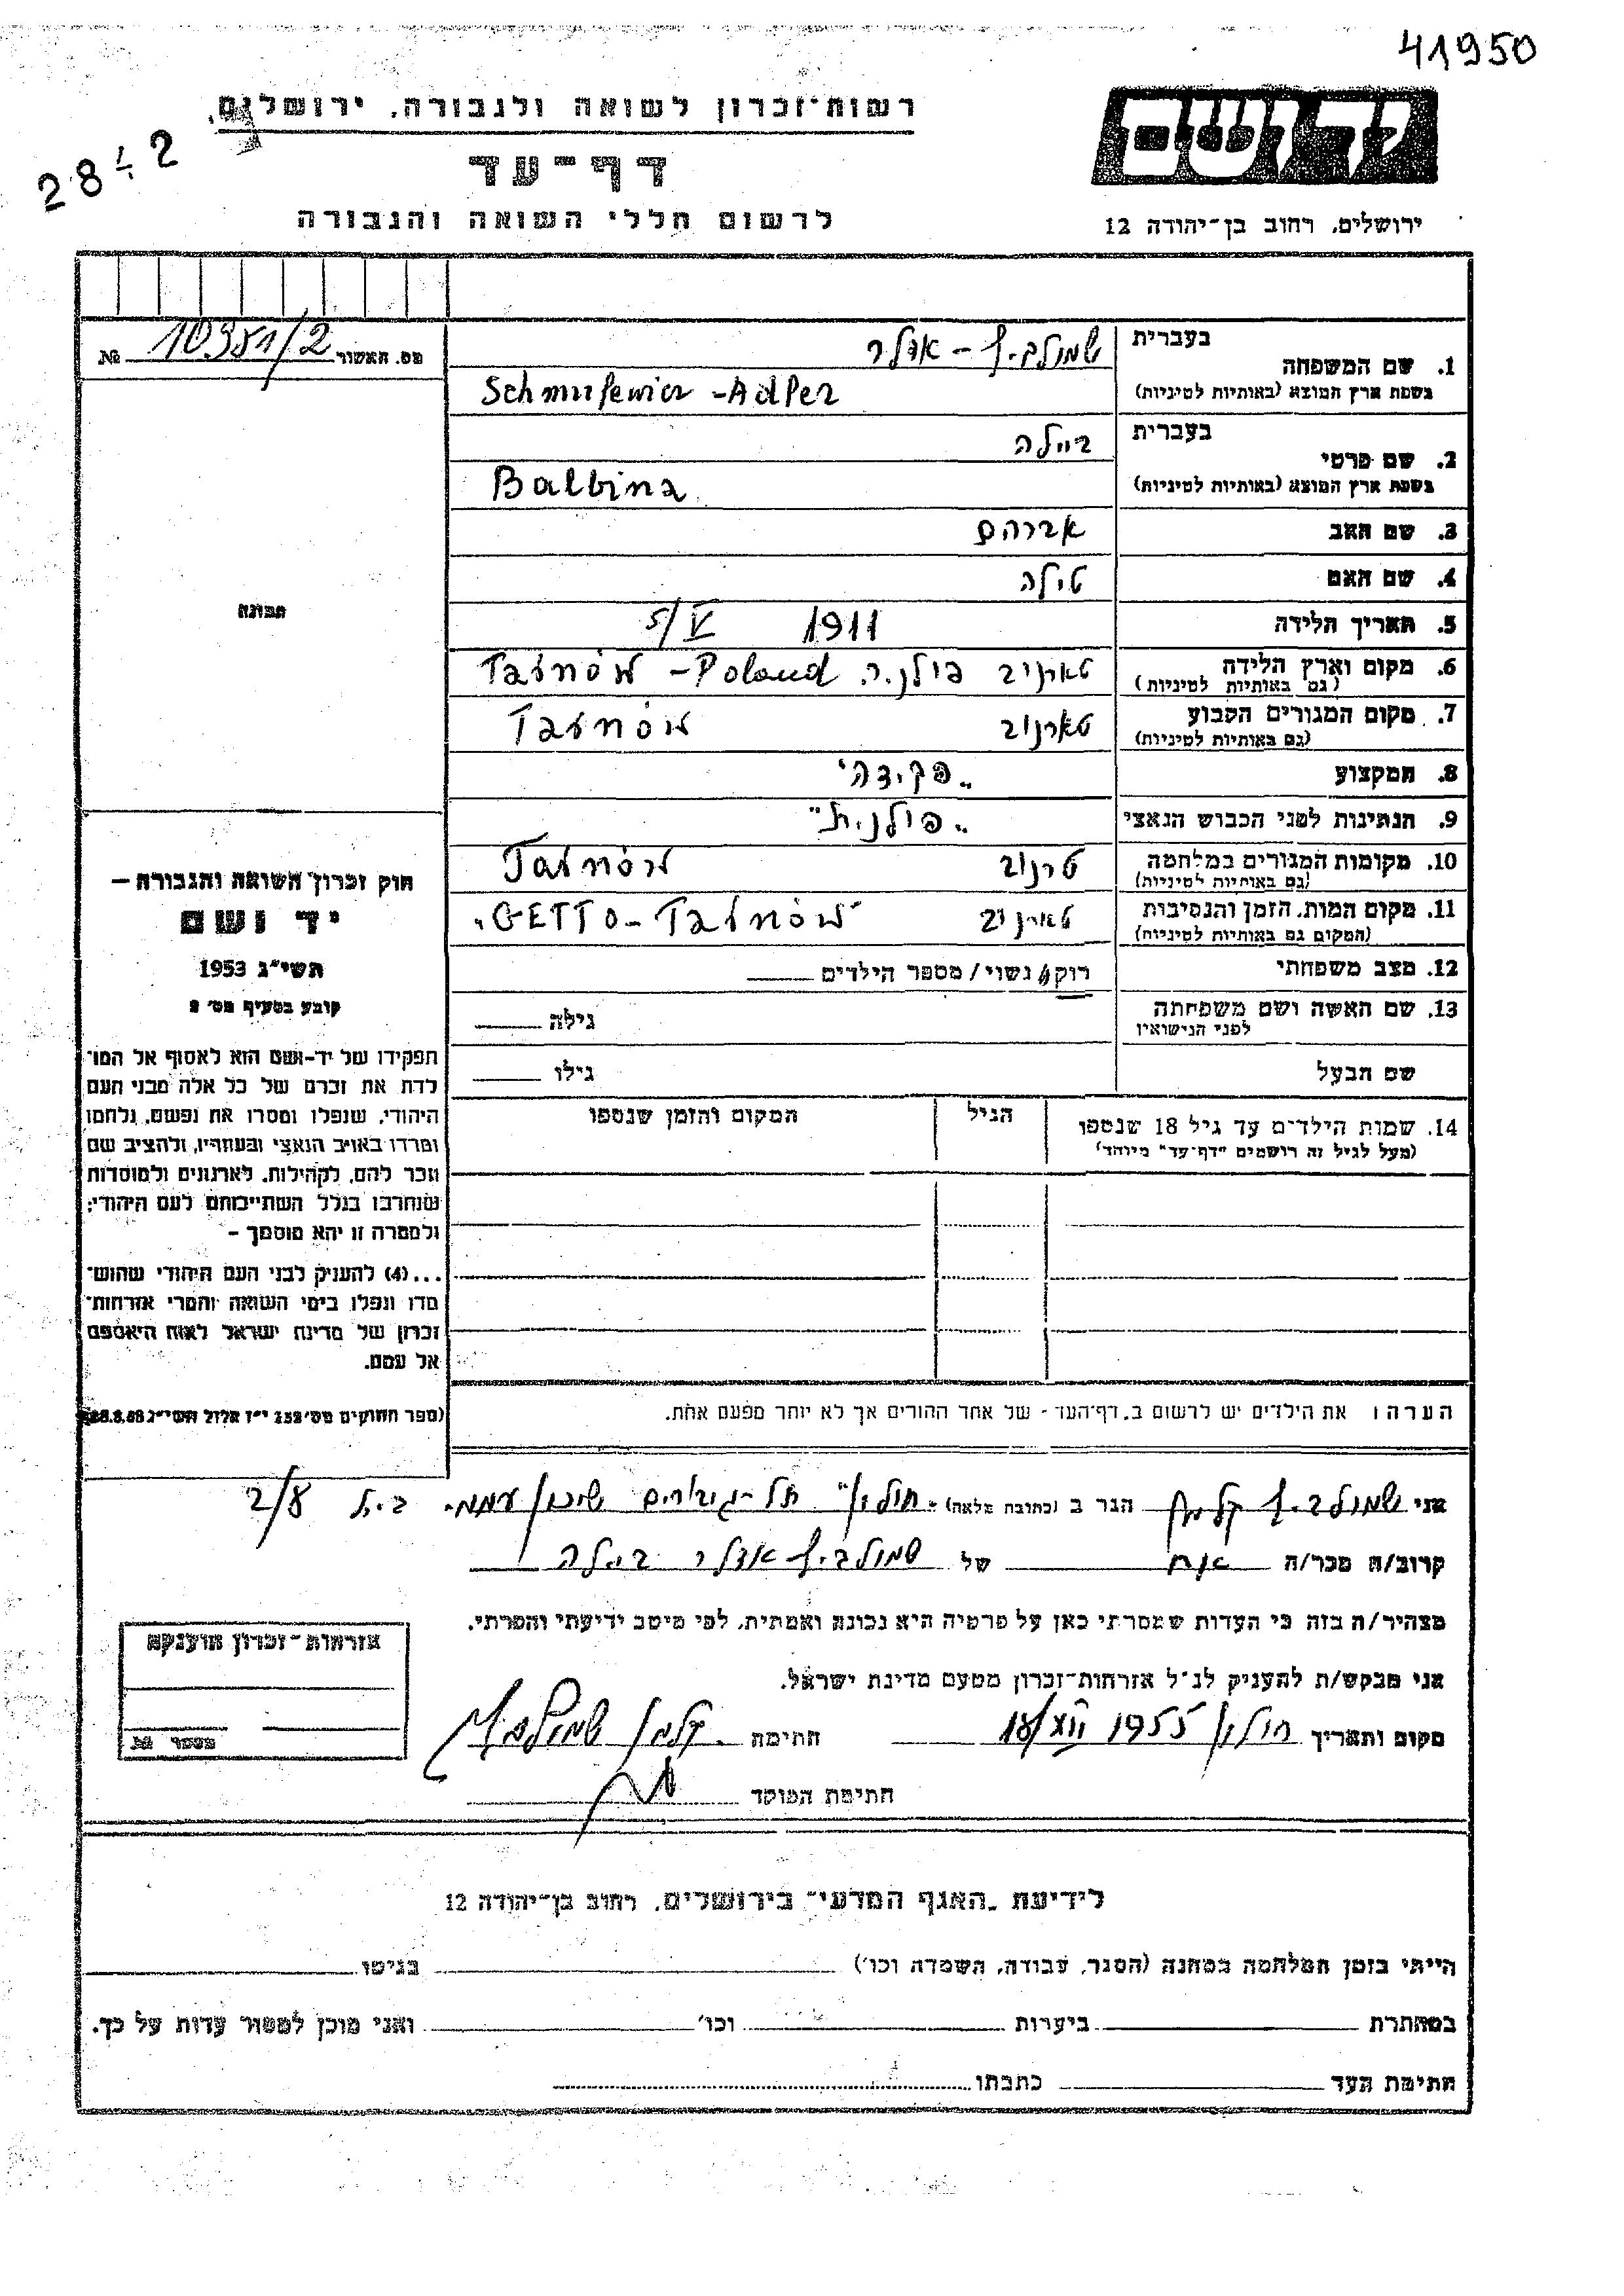 41950
28.2
רשות־זכרון לשואה ולגבורה, ירושלים
דף־עד
לרשום חללי השואה והגבורה
יד ושם
ירושלים, רחוב בן־יהודה 12
מס. האשור № 10981/2
1. שם המשפחה בעברית שמולביץ - אדלר
בשפת ארץ המוצא (באותיות לטיניות) Schmulewicz - Adler
2. שם פרטי בעברית ביילה
בשפת ארץ המוצא (באותיות לטיניות) Balbina
3. שם האב אברהם
4. שם האם טילה
5. תאריך הלידה 5/V 1911
6. מקום וארץ הלידה טארנוב פולניה Tarnów - Poland
(גם באותיות לטיניות)
7. מקום המגורים הקבוע טארנוב Tarnów
(גם באותיות לטיניות)
8. המקצוע "פקידה"
9. הנתינות לפני הכבוש הנאצי "פולנית"
10. מקומות המגורים במלחמה טרנוב Tarnów
(גם באותיות לטיניות)
11. מקום המות, הזמן והנסיבות טארנוב "GETTO - Tarnów"
(המקום גם באותיות לטיניות)
12. מצב משפחתי רווק/ נשוי/ מספר הילדים
13. שם האשה ושם משפחתה גילה
לפני הנישואין
שם הבעל גילו
14. שמות הילדים עד גיל 18 שנספו הגיל המקום והזמן שנספו
(מעל לגיל זה רושמים "דף־עד" מיוחד)
הערה: את הילדים יש לרשום ב"דף־העד" של אחד ההורים אך לא יותר מפעם אחת.
תמונה
חוק זכרון השואה והגבורה —
יד ושם
תשי"ג 1953
קובע בסעיף מס' 2
תפקידו של יד-ושם הוא לאסוף אל המו־
לדת את זכרם של כל אלה מבני העם
היהודי, שנפלו ומסרו את נפשם, נלחמו
ומרדו באויב הנאצי ובעוזריו, ולהציב שם
וזכר להם, לקהילות, לארגונים ולמוסדות
שנחרבו בגלל השתייכותם לעם היהודי;
ולמטרה זו יהא מוסמך -
...(4) להעניק לבני העם היהודי שהוש־
מדו ונפלו בימי השואה והמרי אזרחות־
זכרון של מדינת ישראל לאות היאספם
אל עמם.
(ספר החוקים מס' 132 י"ז אלול תשי"ג 28.8.53)
אני שמולביץ קלמן הגר ב (כתובת מלאה) "חולון" תל-גיבורים שיכון עממי בית 2/8
קרוב/ה מכר/ה אח של שמולביץ - אדלר ביילה
מצהיר/ה בזה כי העדות שמסרתי כאן על פרטיה היא נכונה ואמתית, לפי מיטב ידיעתי והכרתי.
אני מבקש/ת להעניק לנ"ל אזרחות־זכרון מטעם מדינת ישראל.
מקום ותאריך חולון 1955 18/XII חתימה קלמן שמולביץ
חתימת הפוקד
אזרחות־זכרון הוענקה
מספר №
לידיעת "האגף המדעי" בירושלים, רחוב בן־יהודה 12
הייתי בזמן המלחמה במחנה (הסגר, עבודה, השמדה וכו') בגיטו
במחתרת ביערות וכו' ואני מוכן למסור עדות על כך.
חתימת העד כתבתו